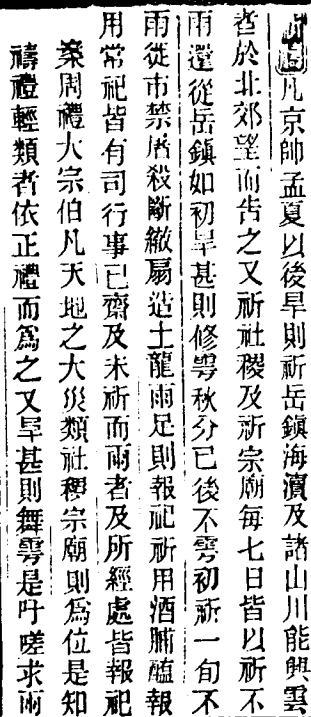 凡京師孟夏以後旱則祈岳鎮海瀆及諸山川能興雲
者於北郊望而告之又祈社稷及祈宗廟每七日皆以祈不
雨還從岳鎮如初旱甚則修雩秋分已後不雩初祈一旬不
雨從市禁屠殺斷繖扇造土龍雨足則報祀祈用酒脯醢報
用常祀皆有司行事已齋及未祈而雨者及所經處皆報祀
案周禮大宗伯凡天地之大災類社稷宗廟則爲位是知
禱禮輕類者依正禮而爲之又旱甚則舞雩是吁嗟求雨